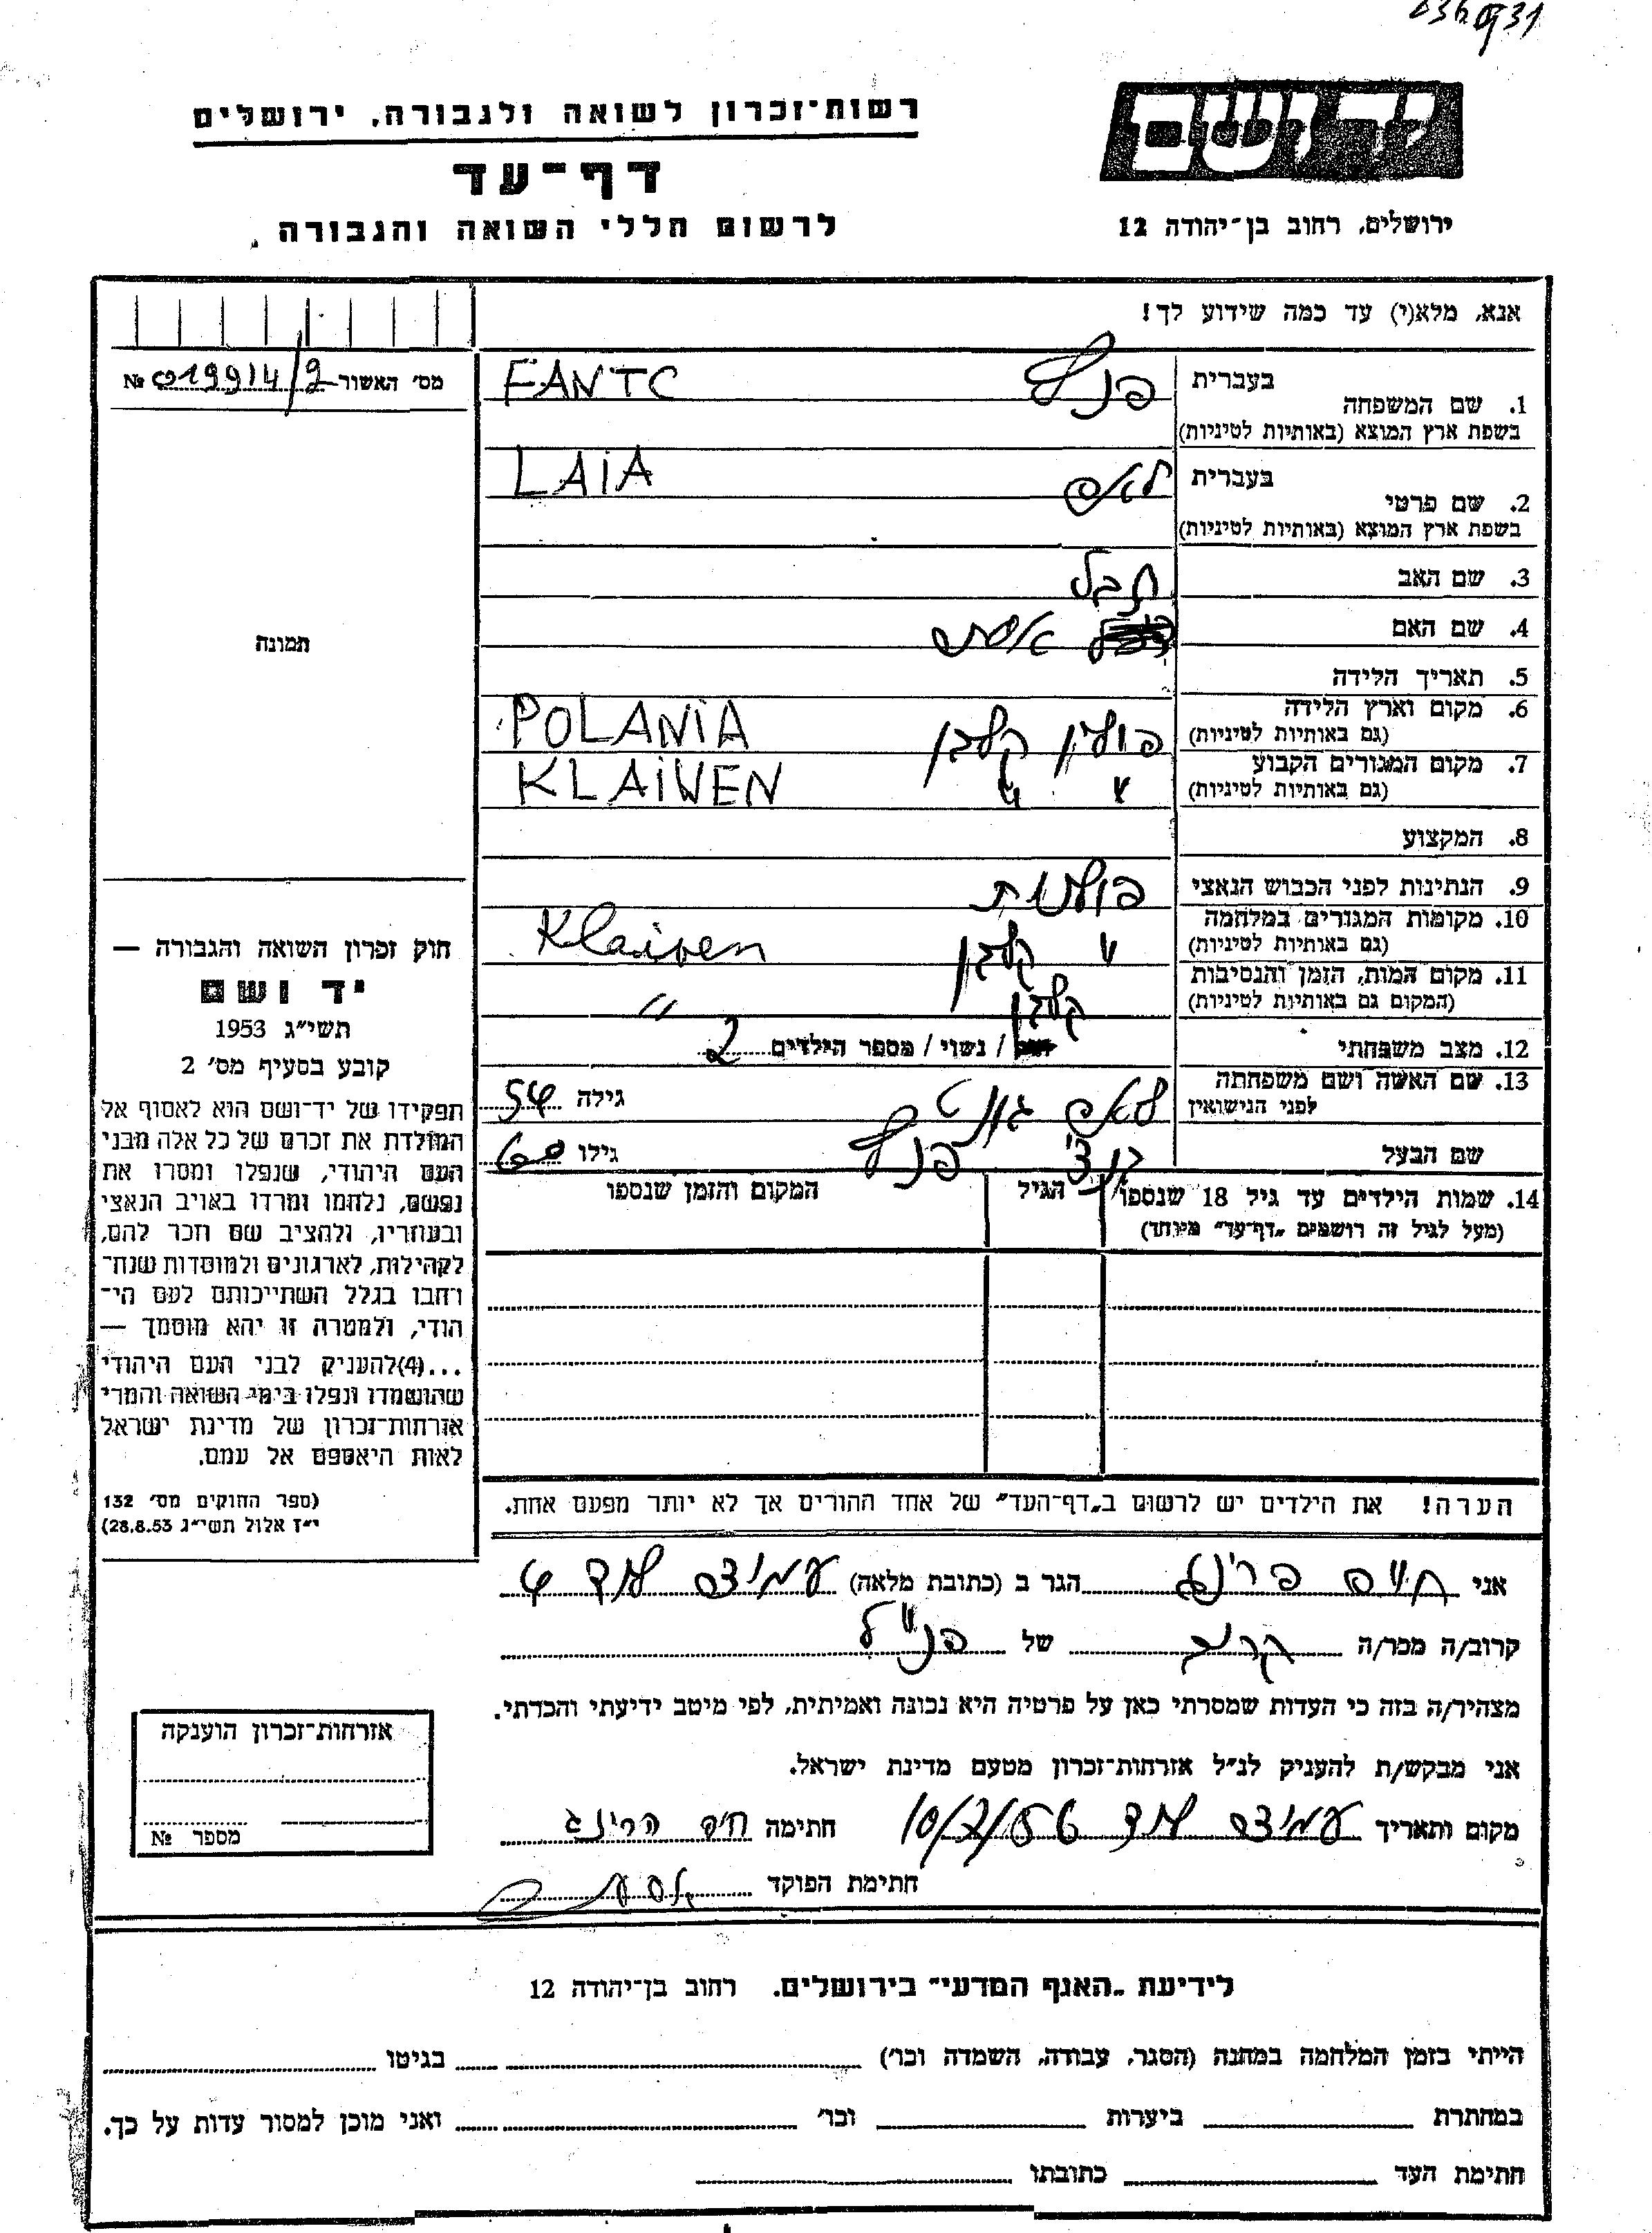 רשות־זכרון לשואה ולגבורה, ירושלים
דף־עד
לרשום חללי השואה והגבורה
יד ושם
ירושלים, רחוב בן־יהודה 12
אנא, מלא(י) עד כמה שידוע לך!
מס׳ האשור № 019914/9
1. שם המשפחה
בעברית
FANTC
בשפת ארץ המוצא (באותיות לטיניות)
2. שם פרטי
בעברית
LAIA
בשפת ארץ המוצא (באותיות לטיניות)
3. שם האב
4. שם האם אסתר
תמונה
5. תאריך הלידה
6. מקום וארץ הלידה
(גם באותיות לטיניות)
פולין קלבן POLANIA
7. מקום המגורים הקבוע
(גם באותיות לטיניות)
״ ״ KLAIWEN
8. המקצוע
9. הנתינות לפני הכבוש הנאצי פולנית
10. מקומות המגורים במלחמה
(גם באותיות לטיניות)
״ קלבן Klaiven
11. מקום המות, הזמן והנסיבות
(המקום גם באותיות לטיניות)
קלבן ״
12. מצב משפחתי / נשוי / מספר הילדים 2
13. שם האשה ושם משפחתה
לפני הנישואין
גילה 54
שם הבעל
גילו 60
14. שמות הילדים עד גיל 18 שנספו
(מעל לגיל זה רושמים „דף־עד״ מיוחד)
הגיל
המקום והזמן שנספו
הערה! את הילדים יש לרשום ב„דף־העד״ של אחד ההורים אך לא יותר מפעם אחת.
חוק זכרון השואה והגבורה —
יד ושם
תשי״ג 1953
קובע בסעיף מס׳ 2
תפקידו של יד־ושם הוא לאסוף אל
המולדת את זכרם של כל אלה מבני
העם היהודי, שנפלו ומסרו את
נפשם, נלחמו ומרדו באויב הנאצי
ובעוזריו, ולהציב שם וזכר להם,
לקהילות, לארגונים ולמוסדות שנח־
רחבו בגלל השתייכותם לעם הי־
הודי, ולמטרה זו יהא מוסמך —
...(4)להעניק לבני העם היהודי
שהושמדו ונפלו בימי השואה והמרי
אזרחות־זכרון של מדינת ישראל
לאות היאספם אל עמם.
(ספר החוקים מס׳ 132
י״ז אלול תשי״ג 28.8.53)
אני חיים הגר ב (כתובת מלאה) עמינדב
קרוב/ה מכר/ה קרוב של הנ״ל
מצהיר/ה בזה כי העדות שמסרתי כאן על פרטיה היא נכונה ואמיתית, לפי מיטב ידיעתי והכרתי.
אני מבקש/ת להעניק לנ״ל אזרחות־זכרון מטעם מדינת ישראל.
מקום ותאריך 10/7/56 חתימה
חתימת הפוקד
אזרחות־זכרון הוענקה
מספר №
לידיעת „האגף המדעי״ בירושלים. רחוב בן־יהודה 12
הייתי בזמן המלחמה במחנה (הסגר, עבודה, השמדה וכו׳) בגיטו
במחתרת ביערות וכו׳ ואני מוכן למסור עדות על כך.
חתימת העד כתובתו